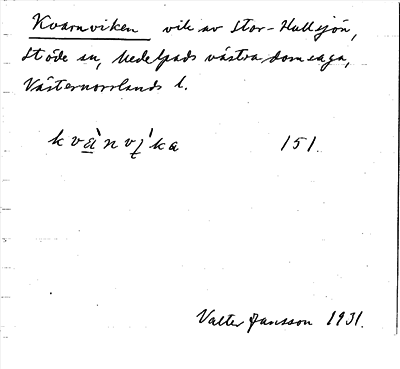 Kvarnviken vik av Stor-Hullsjön,
Stöde sn, Medelpads västra domsaga,
Västernorrlands l.
kvànvi̠ ́ka 151.
Valter Jansson 1931.